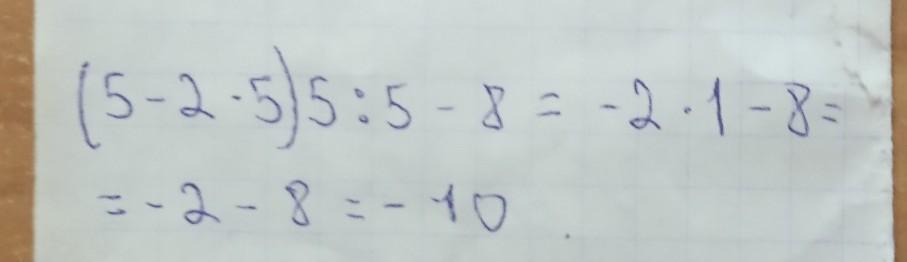 (5-2·5)5:5-8=-2·1-8=
=-2-8=-10